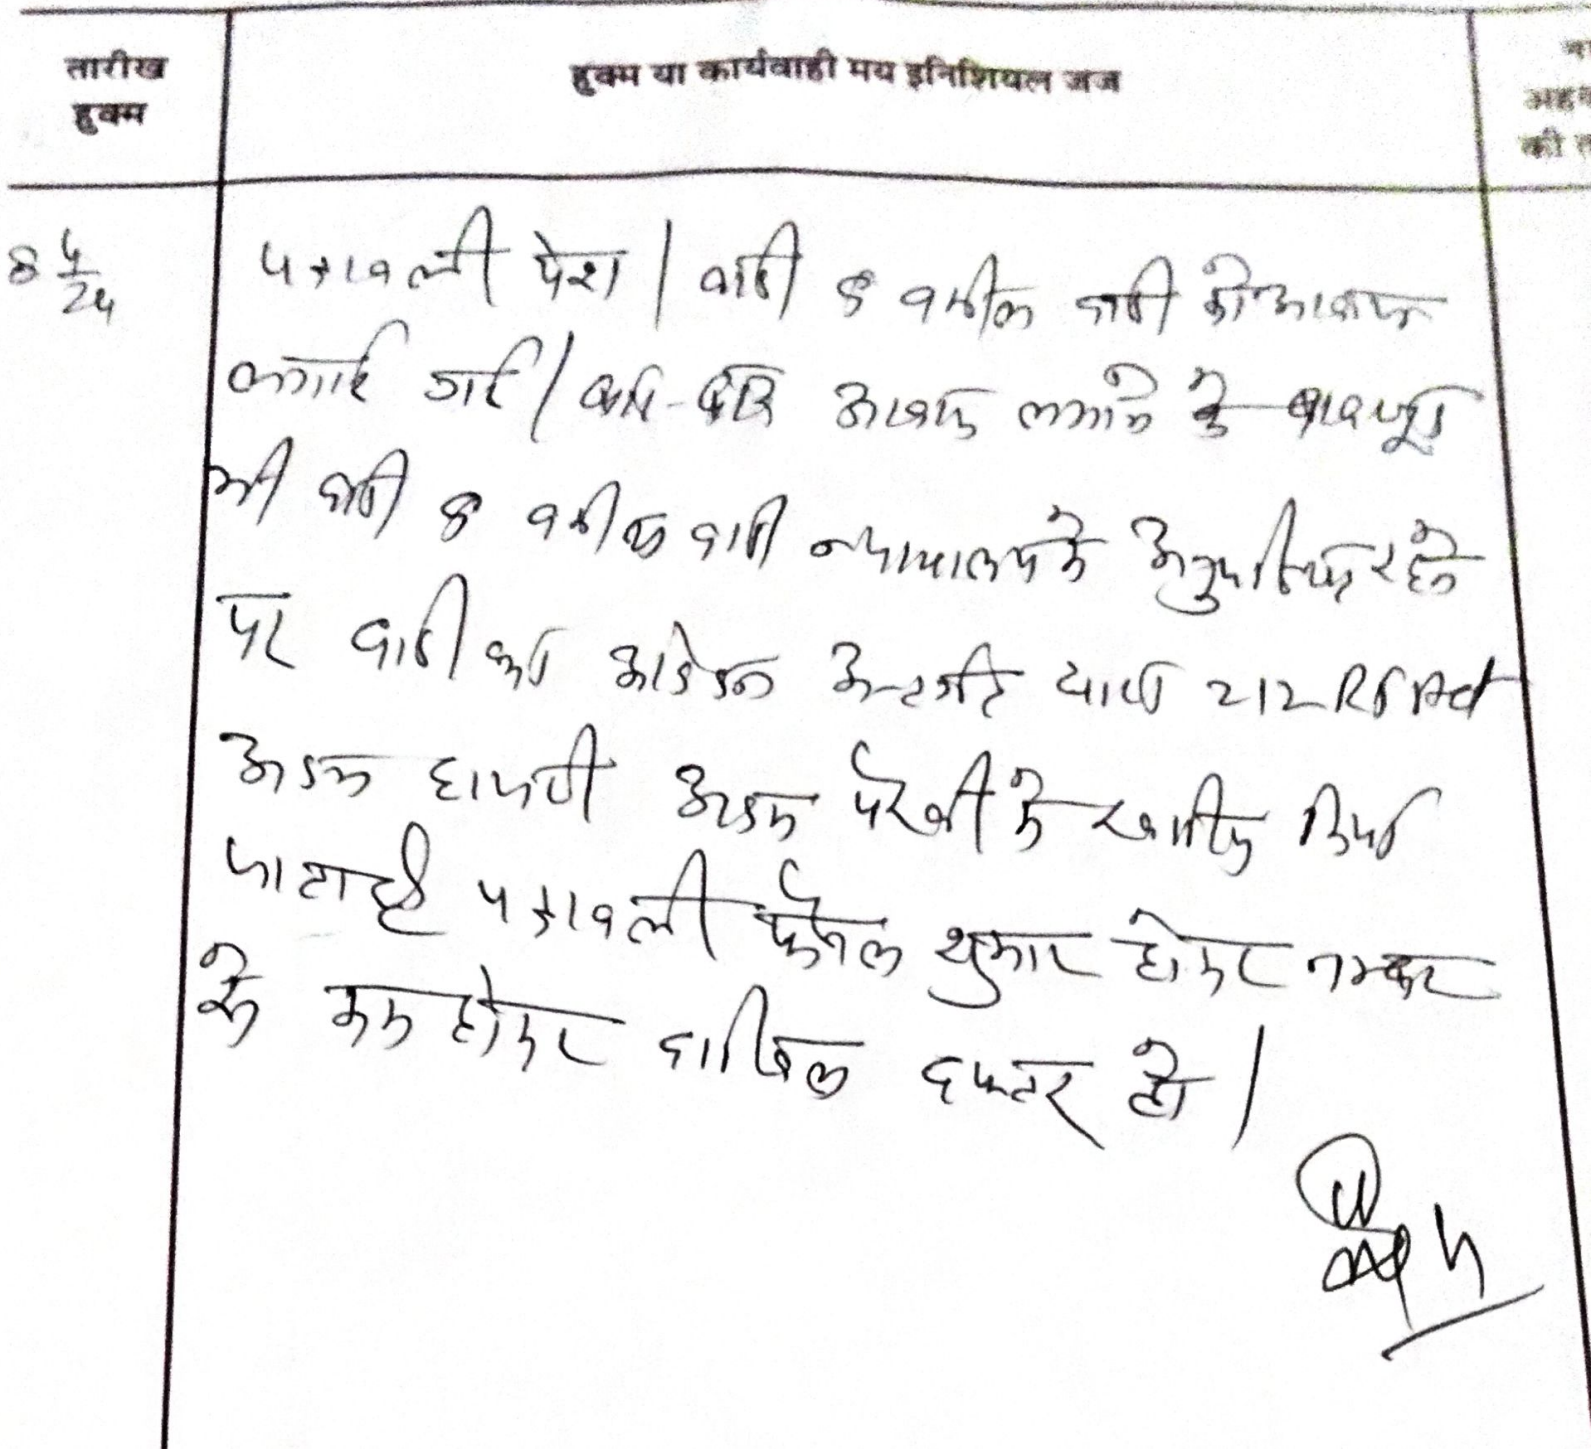 तारीख हुक्म
हुक्म या कार्यवाही मय इनिशियल जज
अहल
की त
8 4/24
पत्रावली पेश। वादी व वकील वादी को आवाज
लगाई गई। बार-बार आवाज लगाने के बावजूद
भी वादी व वकील वादी न्यायालय में अनुपस्थित रहने
पर वादी का आवेदन अन्तर्गत धारा 212 RT Act
अदम हाजरी अदम पैरवी में खारिज किया
जाता है पत्रावली फैसल शुमार होकर नम्बर
से कम होकर दाखिल दफ्तर हो।